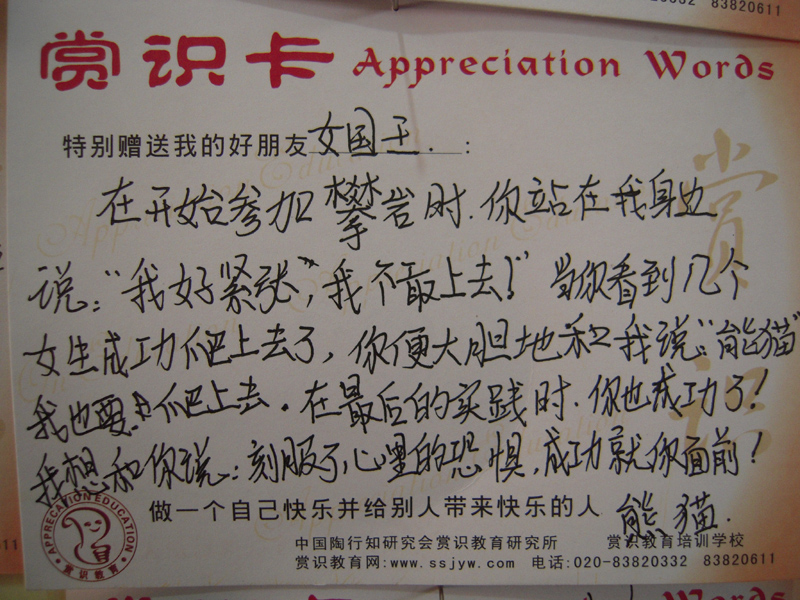 20332 83820611
赏识卡 Appreciation Words
特别赠送我的好朋友女国王.:
在开始参加攀岩时.你站在我身边
说:“我好紧张”,我不敢上去!”当你看到几个
女生成功爬上去了,你便大胆地和我说:“熊猫”
我也要爬上去.在最后的实践时.你也成功了!
我想和你说:刻服了心里的恐惧,成功就你面前!
做一个自己快乐并给别人带来快乐的人 熊猫.
中国陶行知研究会赏识教育研究所 赏识教育培训学校
赏识教育网:www.ssjyw.com 电话:020-83820332 83820611
APPRECIATION EDUCATION
赏识教育
赏识